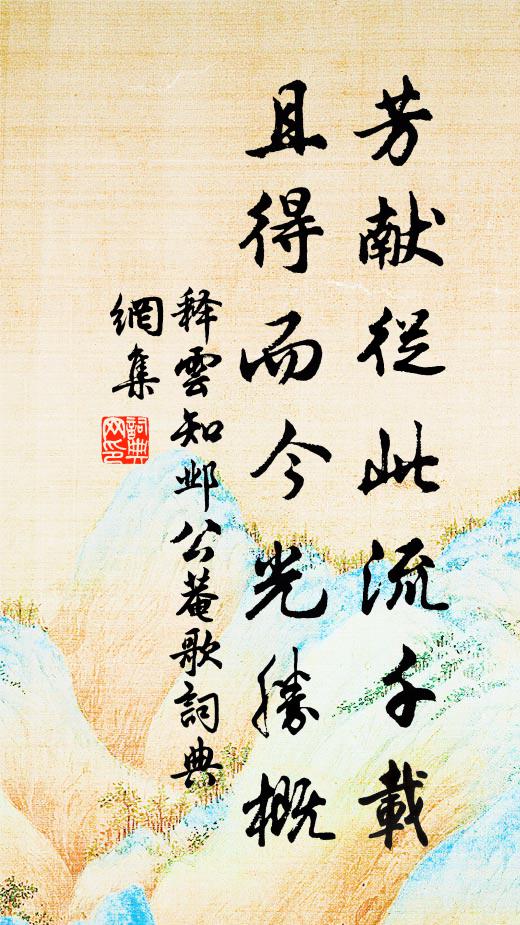 芳献從此流千載
且得而今光勝概
释雲知邺公菴歌詞典
網集
詞典网印